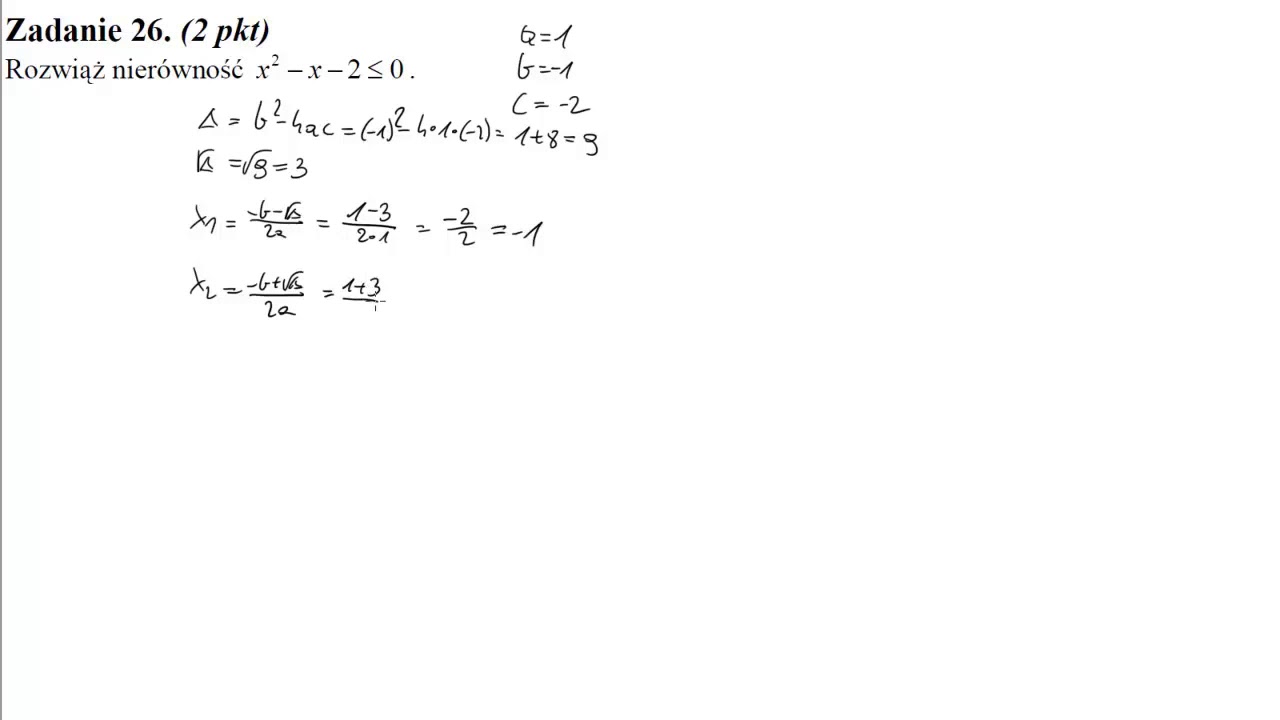 Zadanie 26. (2 pkt)
a=1
Rozwiąż nierówność x² − x − 2 ≤ 0 .
b=-1
c = -2
Δ = b²-4ac = (-1)²-4·1·(-2) = 1+8 = 9
√Δ = √9 = 3
x₁ = (-b-√Δ)/(2a) = (1-3)/(2·1) = -2/2 = -1
x₂ = (-b+√Δ)/(2a) = 1+3